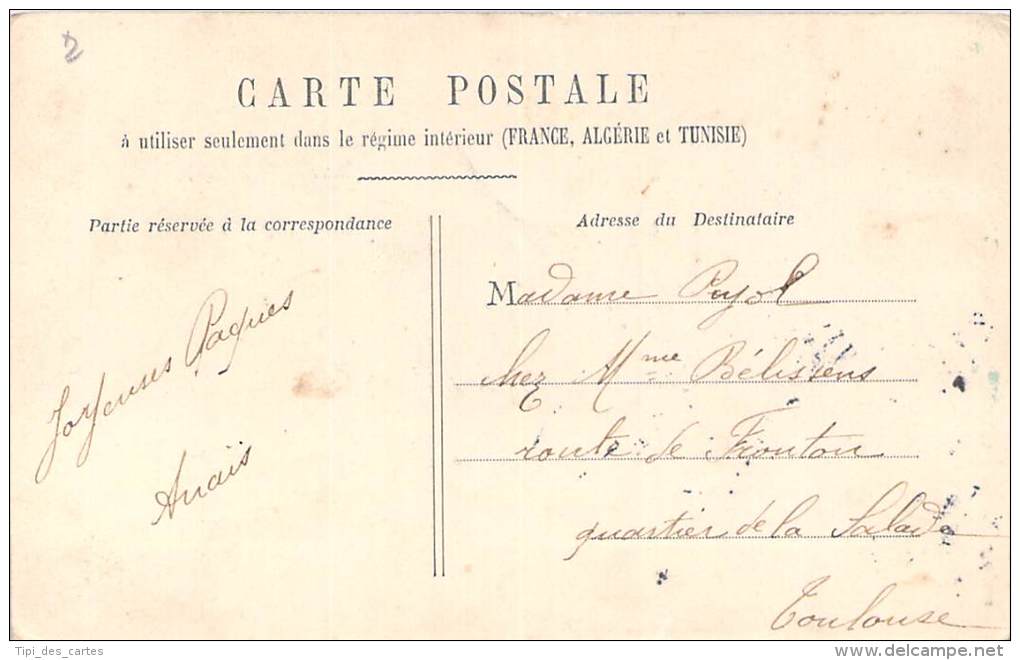 2
CARTE POSTALE
à utiliser seulement dans le régime intérieur (FRANCE, ALGÉRIE et TUNISIE)
Partie réservée à la correspondance
Joyeuses Paques
Anaïs
Adresse du Destinataire
Madame Pujol
chez Mme Bélissens
route de Fronton
quartier de la Salade
Toulouse
Tipi_des_cartes
delcampe.net